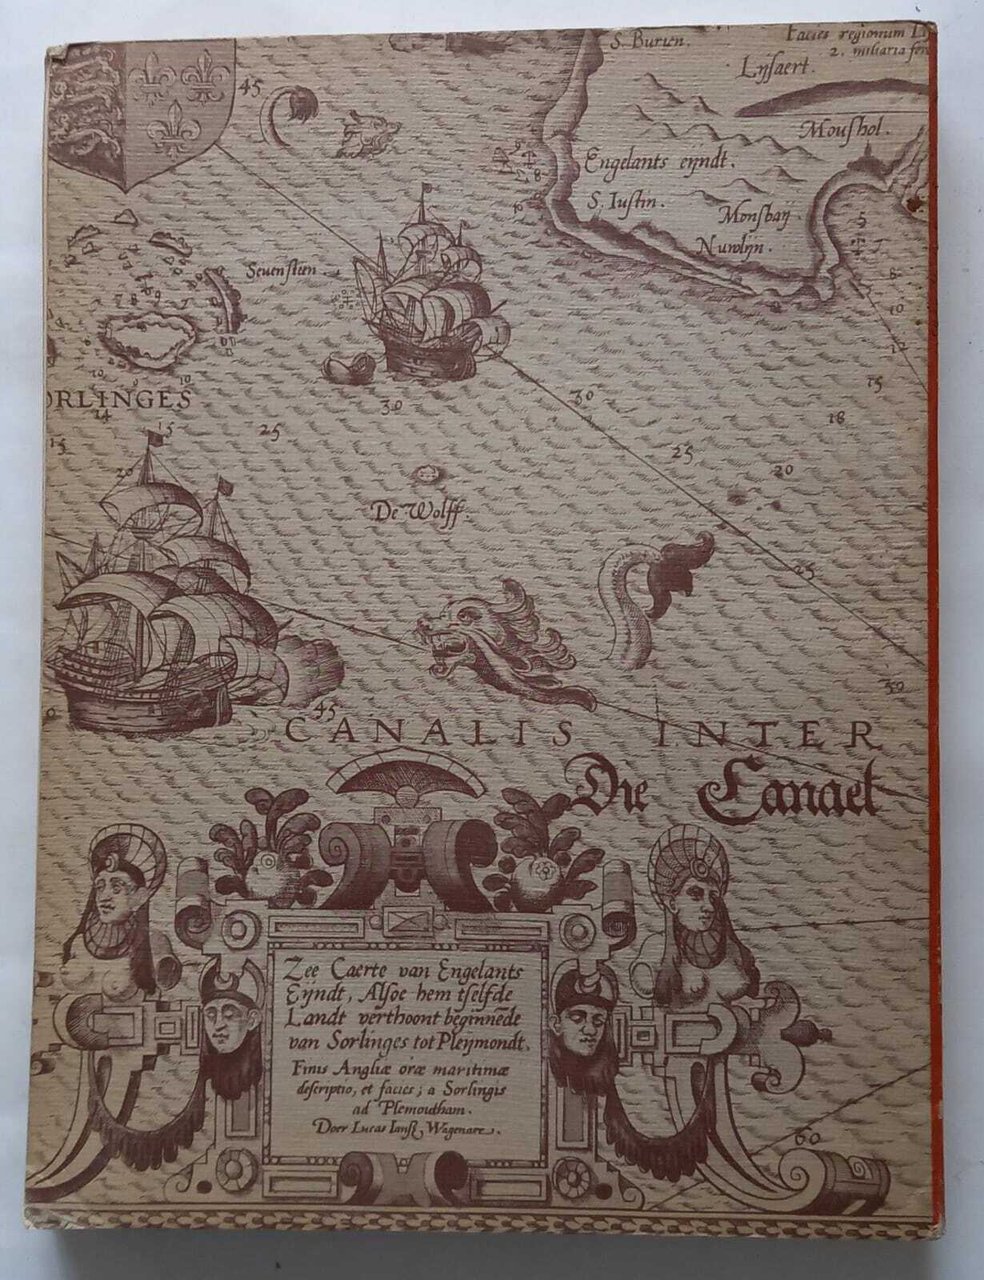 S. Burien.
Facies regionum
2. miliaria
Lÿsaert.
45
Moushol.
Engelants eÿndt.
S. Iustin.
Monsbaÿ
Nuwlÿn.
Seuenstien
5
8
10
12
15
18
30
30
25
20
25
ORLINGES
14
15
15
25
20
De Wolff.
25
50
45
CANALIS INTER
Die Canael
Zee Caerte van Engelants
Eÿndt, Alsoe hem tselfde
Landt verthoont beginnēde
van Sorlinges tot Pleÿmondt.
Finis Angliæ oræ maritimæ
descriptio, et facies; a Sorlingis
ad Plemoutham.
Doer Lucas Ianß Wagenaer.
60